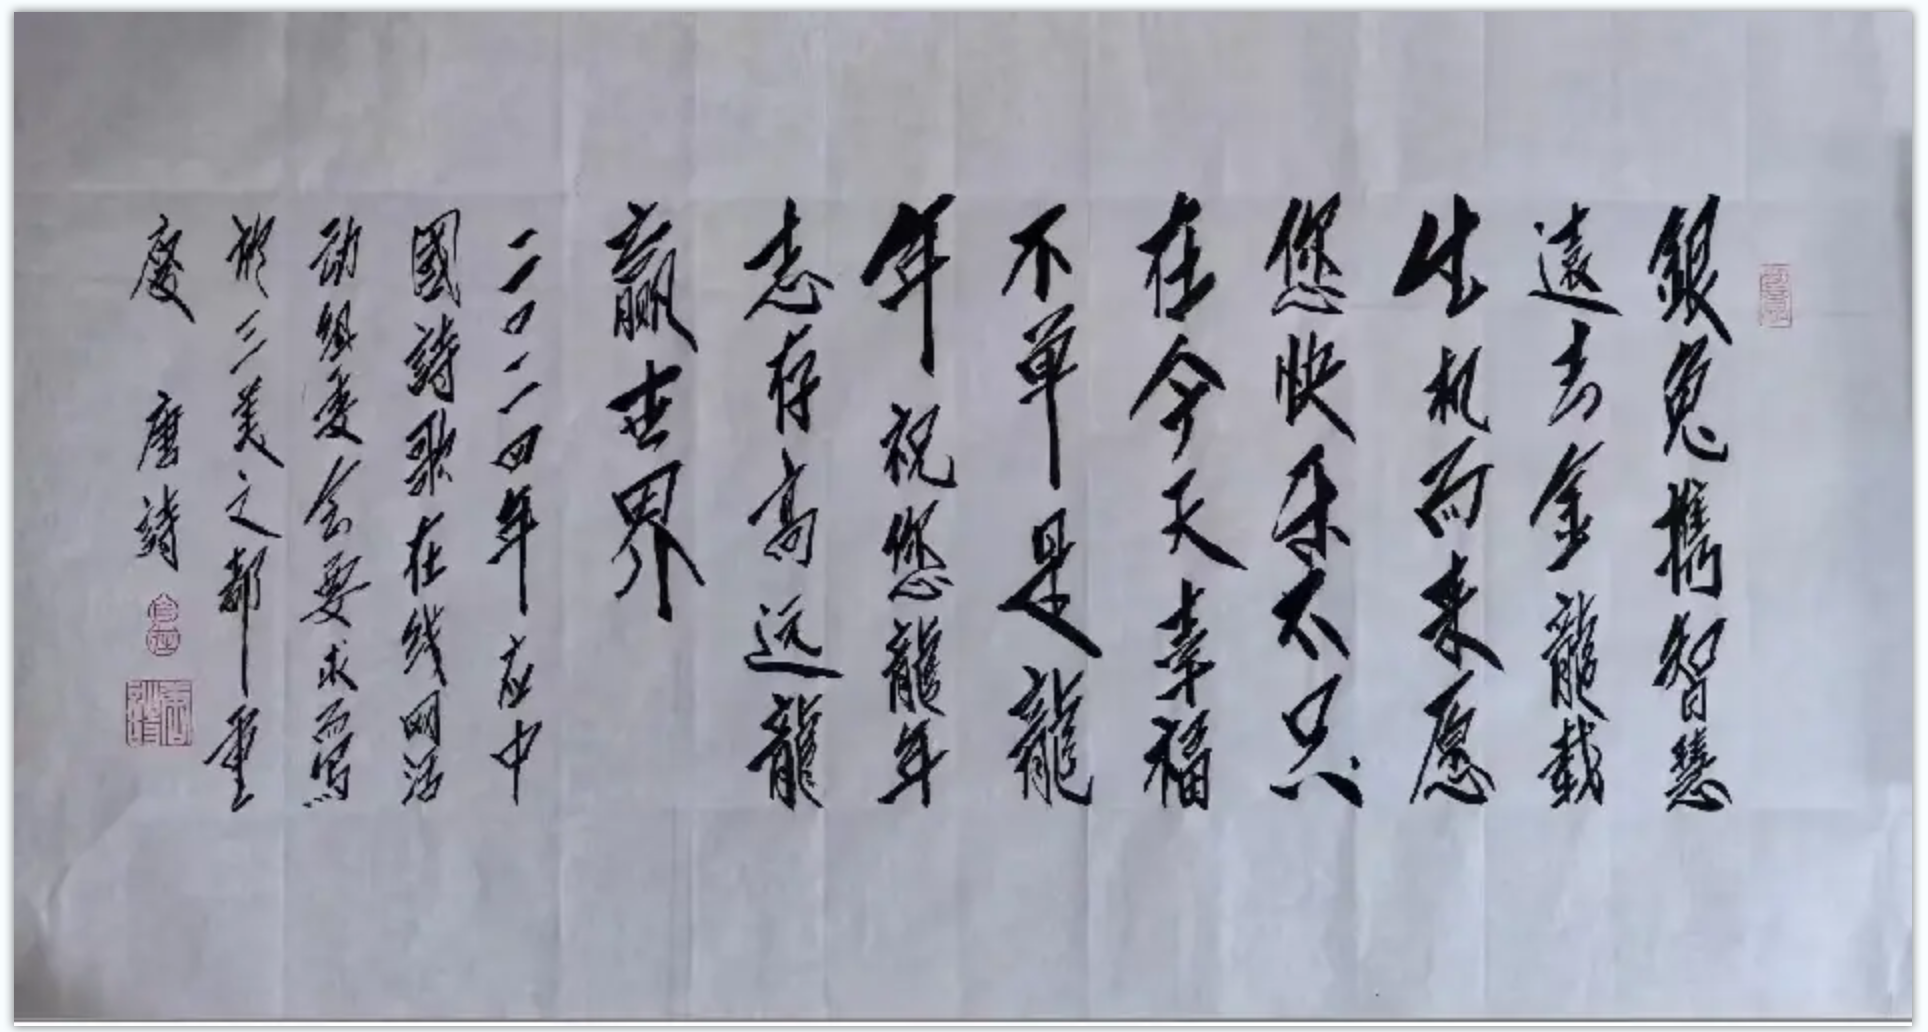 銀兔携智慧
遠去金龍載
生机而来愿
您快乐不只
在今天幸福
不单是龍
年祝您龍年
志存高远龍
赢世界
二〇二四年应中
國詩歌在线网活
动组委会要求而写
於三美之都重
慶 唐詩